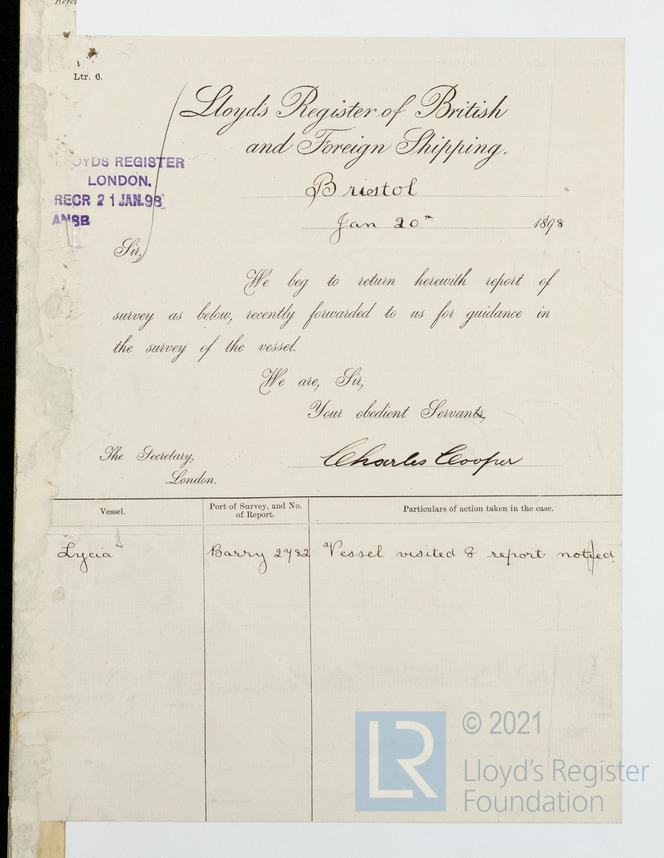 Ltr. 6.
Lloyd's Register of British
and Foreign Shipping.
LLOYDS REGISTER
LONDON.
RECR 21 JAN.98
Bristol
Jan 20th 1898
Sir,
We beg to return herewith report of
survey as below, recently forwarded to us for guidance in
the survey of the vessel.
We are, Sir,
Your obedient Servants,
The Secretary,
London.
Charles Cooper
Vessel.
Port of Survey, and No.
of Report.
Particulars of action taken in the case.
Lycia
Barry 2782
Vessel visited & report noted
LR
© 2021
Lloyd's Register
Foundation